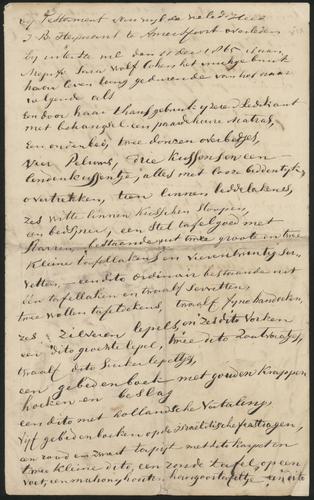 bij Testament van wijlde wel ed. Heer
J. B. Heijmans te Amersfoort overleden
den 1865 is aan
Mejufr. Sara Wolf het vruchgebruik
haar leven lang gedurende van het naar
volgende als
Een door haar thans gebruikt ijzere Ledekant
met behangsel een paardehaire Matras,
Een onderbed, twee donzen overbedjes,
vier Peluws, drie Kussens en een
kindenkussentje, alles met losse bedden tijk
overtrekken, tien linnen beddelakens,
zes witte linnen Kussen Sloopen,
een bedsprei, een Stel tafelgoed met
Starren, bestaande uit twee groote en twee
Kleine tafellakens en vierentwintig Ser-
vetten, een dito ordinair bestaande uit
één tafellaken en twaalf Servetten,
twee wollen tafelkleeds, twaalf fijne handoeken,
zes Zilveren lepels, en zes dito Vorken
een dito groente lepel, twee dito Zoutvaatjes,
twaalf dito Suiker lepeltjes,
een gebedenboek met gouden Krappen
hoeken en beslag
een dito met hollandsche Vertaling,
Vijf gebedenboeken op de feestdagen,
een rond en zwart tapijt met dito Karpet en
twee kleine dito, een ronde tafel, op een
voet, een mahonij houten